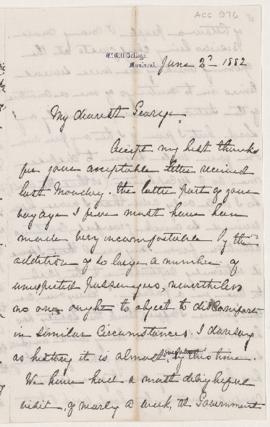 ACC 976
McGill College
Montreal
June 2nd 1882
My dearest George
Accept my best thanks
for your acceptable letter received
last Monday. the latter part of your
voyage I fear must have been
made very uncomfortable by the
addition of so large a number of
unexpected passengers, nevertheless
no one ought to object to discomfort
in similar circumstances. I daresay
as history it is almost by this time.
We have had a most delightful
visit, of nearly a week, the Government